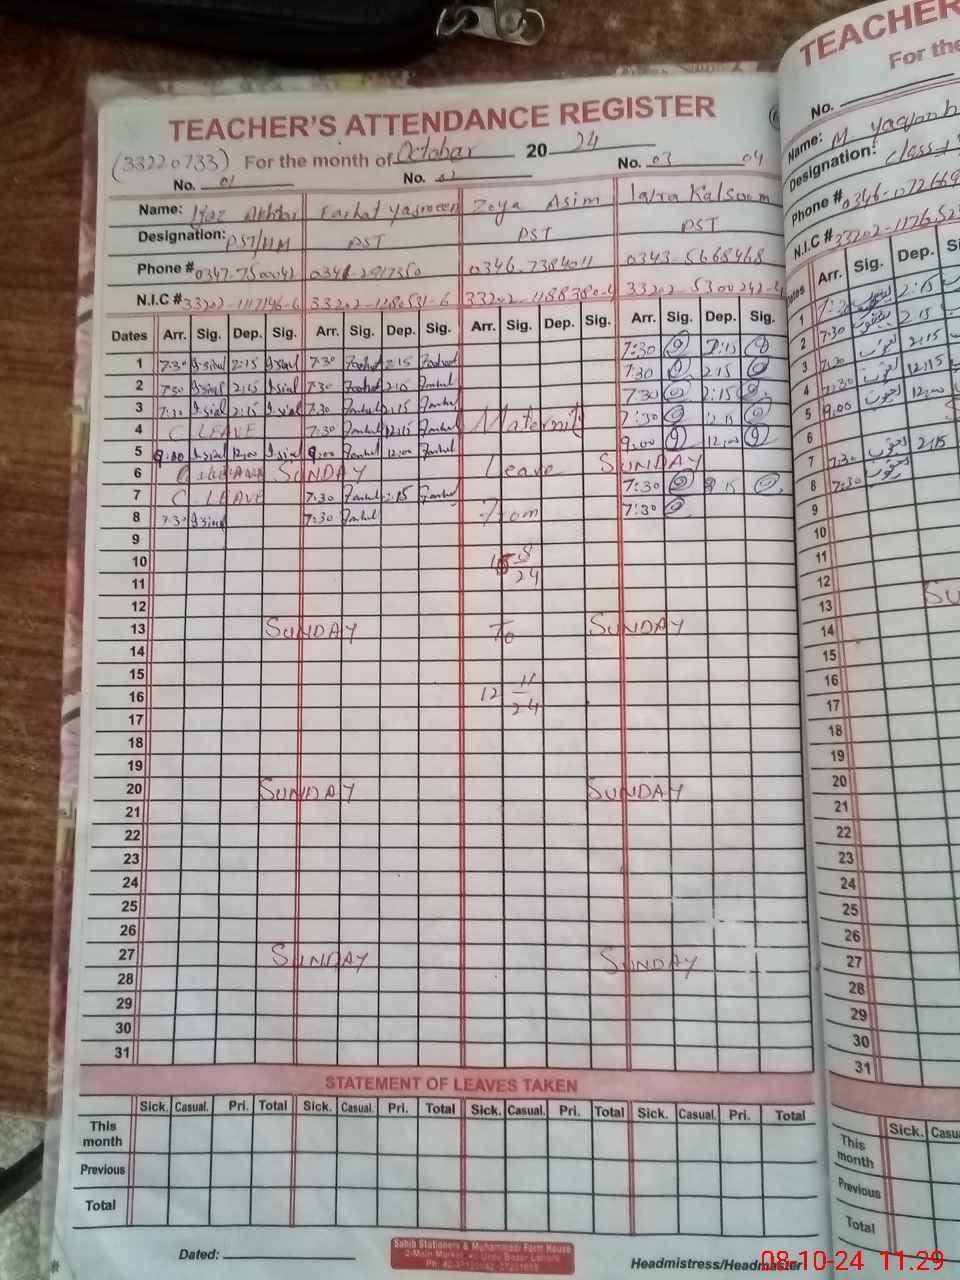 TEACHER'S ATTENDANCE REGISTER
(33220733) For the month of October 20 24
No. 01 No. 02 No. 03 04
Name: Ijaz Akhtar Farhat Yasmeen Zoya Asim Iqra Kalsoom
Designation: PST/HM PST PST PST
Phone # 0347-7500042 0341-2917350 0346-7384011 0343-5668468
N.I.C # 33202-1117146-6 33202-1280531-6 33202-1188380-4 33202-5300242-4
Dates Arr. Sig. Dep. Sig. Arr. Sig. Dep. Sig. Arr. Sig. Dep. Sig. Arr. Sig. Dep. Sig.
1 7:30 2:15 7:30 2:15 7:30 2:15
2 7:30 2:15 7:30 2:15 7:30 2:15
3 7:30 2:15 7:30 2:15 7:30 2:15
4 C LEAVE 7:30 12:15 Maternity 7:30 12:15
5 9:00 12:00 9:00 12:00 9:00 12:00
6 SUNDAY Leave SUNDAY
7 C. LEAVE 7:30 2:15 7:30 2:15
8 7:30 7:30 From 7:30
9
10 8
11 24
12
13 SUNDAY To SUNDAY
14
15
16 12 11
17 24
18
19
20 SUNDAY SUNDAY
21
22
23
24
25
26
27 SUNDAY SUNDAY
28
29
30
31
STATEMENT OF LEAVES TAKEN
Sick. Casual. Pri. Total Sick. Casual. Pri. Total Sick. Casual. Pri. Total Sick. Casual. Pri. Total
This month
Previous
Total
Dated:
Sahib Stationers & Muhammadi Form House
2-Main Market 40-Urdu Bazar Lahore
Headmistress/Headmaster
TEACHER
For the
No.
Name: M
Designation: Class
Phone # 0346-
N.I.C # 33202-1176
Arr. Sig. Dep.
1 7:30 2:15
2 7:30 2:15
3 7:30 2:15
4 7:30 12:15
5 9:00 12:00
6
7 7:30 2:15
8 7:30
9
10
11
12
13 SU
14
15
16
17
18
19
20
21
22
23
24
25
26
27
28
29
30
31
Sick. Casu
This month
Previous
Total
08-10-24 11.29